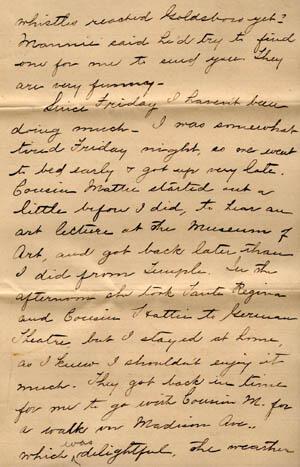 whistles reached Goldsboro yet?
Mannie said he'd try to find
one for me to send you. They
are very funny -
Since Friday I haven't been
doing much - I was somewhat
tired Friday night, so we went
to bed early & got up very late.
Cousin Mattie started out a
little before I did, to hear an
art lecture at the Museum of
Art, and got back later than
I did from temple. In the
afternoon she took Tante Regina
and Cousin Hattie to German
Theatre, but I stayed at home,
as I knew I shouldn't enjoy it
much. They got back in time
for me to go with Cousin M. for
a walk on Madison Ave.,
which was delightful, the weather